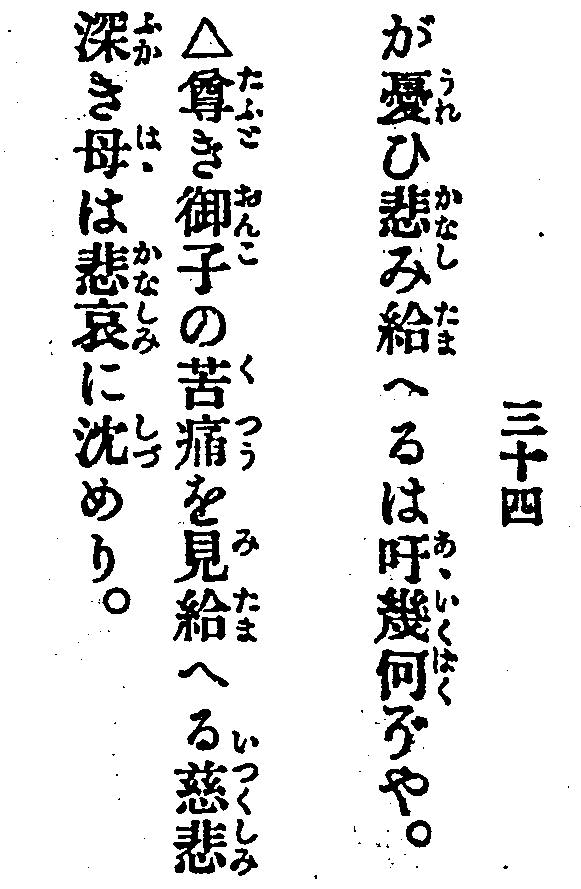 三十四
が憂ひ悲み給へるは吁幾何ぞや。
△尊き御子の苦痛を見給へる慈悲
深き母は悲哀に沈めり。